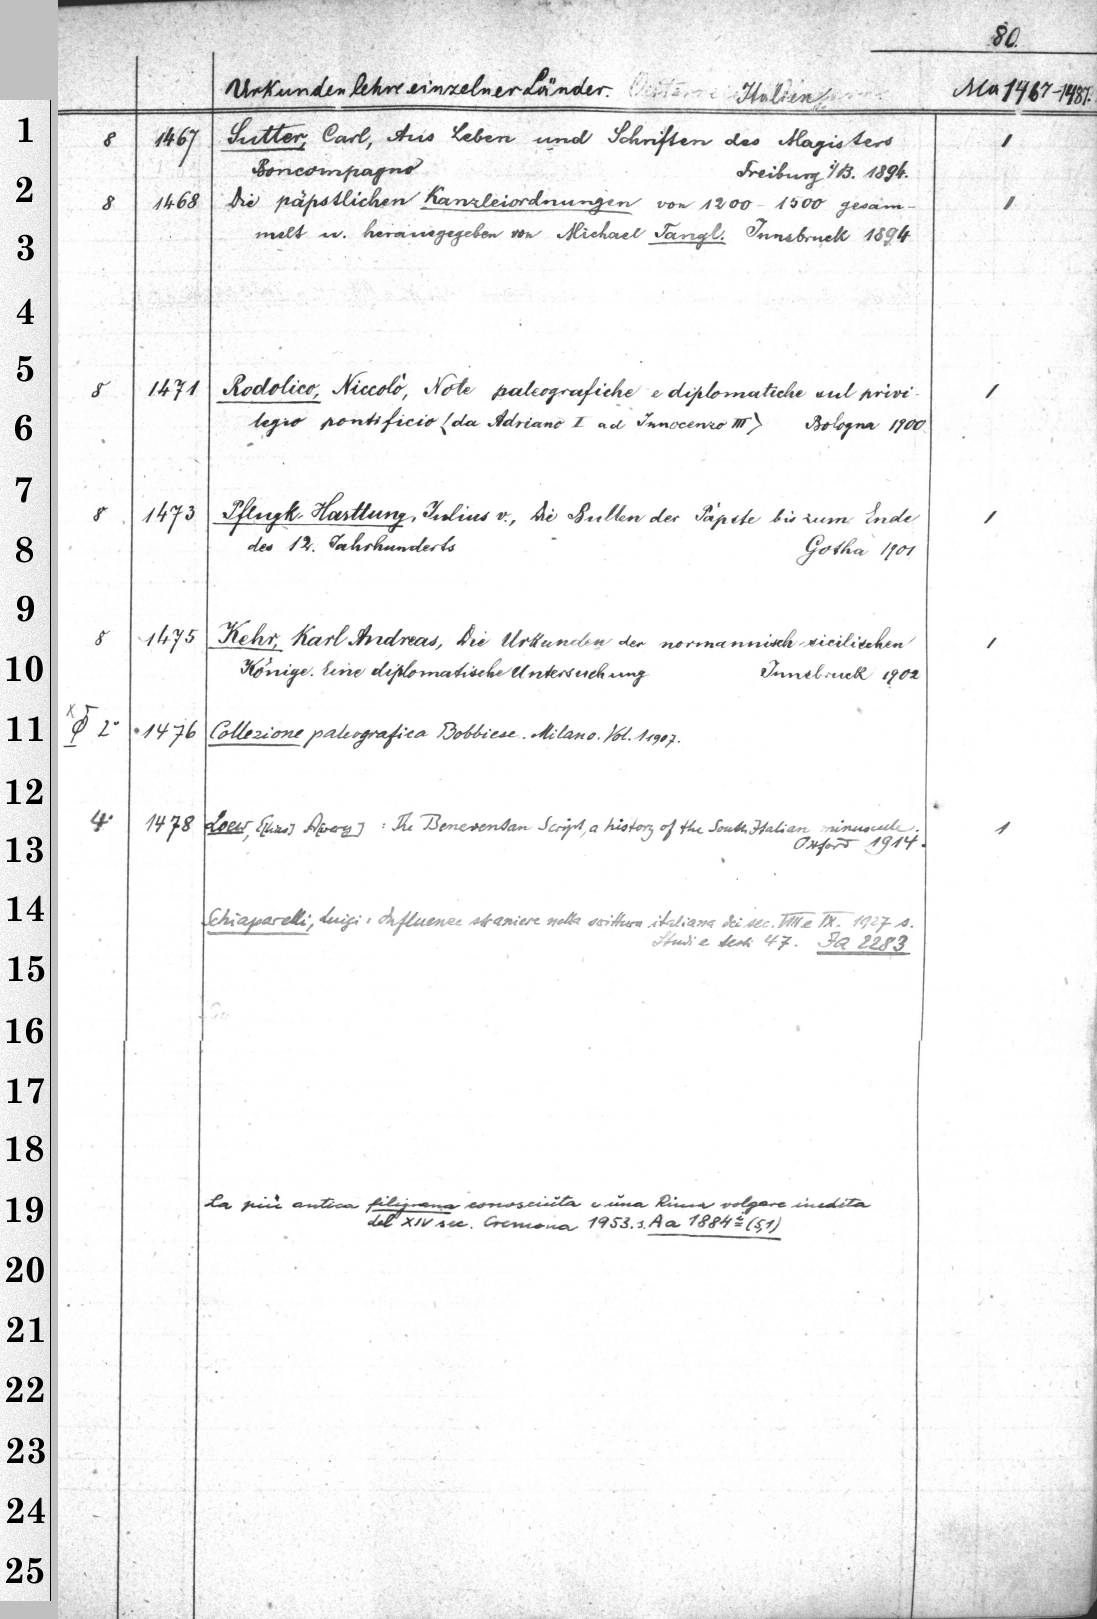 80.
Urkundenlehre einzelner Länder. Italien Ma 1467-1487.
1
8 1467 Sutter, Carl, Aus Leben und Schriften des Magisters 1
Boncompagno Freiburg i/B. 1894.
2
8 1468 Die päpstlichen Kanzleiordnungen von 1200-1500 gesam- 1
melt u. herausgegeben von Michael Tangl. Innsbruck 1894
3
4
5
8 1471 Rodolico, Niccolò, Note paleografiche e diplomatiche sul privi- 1
6
legio pontificio (da Adriano I ad Innocenzo III) Bologna 1900
7
8 1473 Pflugk-Harttung, Julius v., Die Bullen der Päpste bis zum Ende 1
8
des 12. Jahrhunderts Gotha 1901
9
8 1475 Kehr, Karl Andreas, Die Urkunden der normannisch-sicilischen 1
10
Könige. Eine diplomatische Untersuchung Innsbruck 1902
11
2° 1476 Collezione paleografica Bobbiese. Milano. Vol. 1 1907.
12
4° 1478 Loew, E[lias] A[very] : The Beneventan Script, a history of the South Italian minuscule. 1
13
Oxford 1914.
14
Schiaparelli, Luigi: Influenze straniere nella scrittura italiana dei sec. VIII e IX. 1927 s.
Studi e testi 47. Fa 2283
15
16
17
18
19
La più antica filigrana conosciuta e una Rima volgare inedita
del XIV sec. Cremona 1953. s. Aa 1884 (5,1)
20
21
22
23
24
25